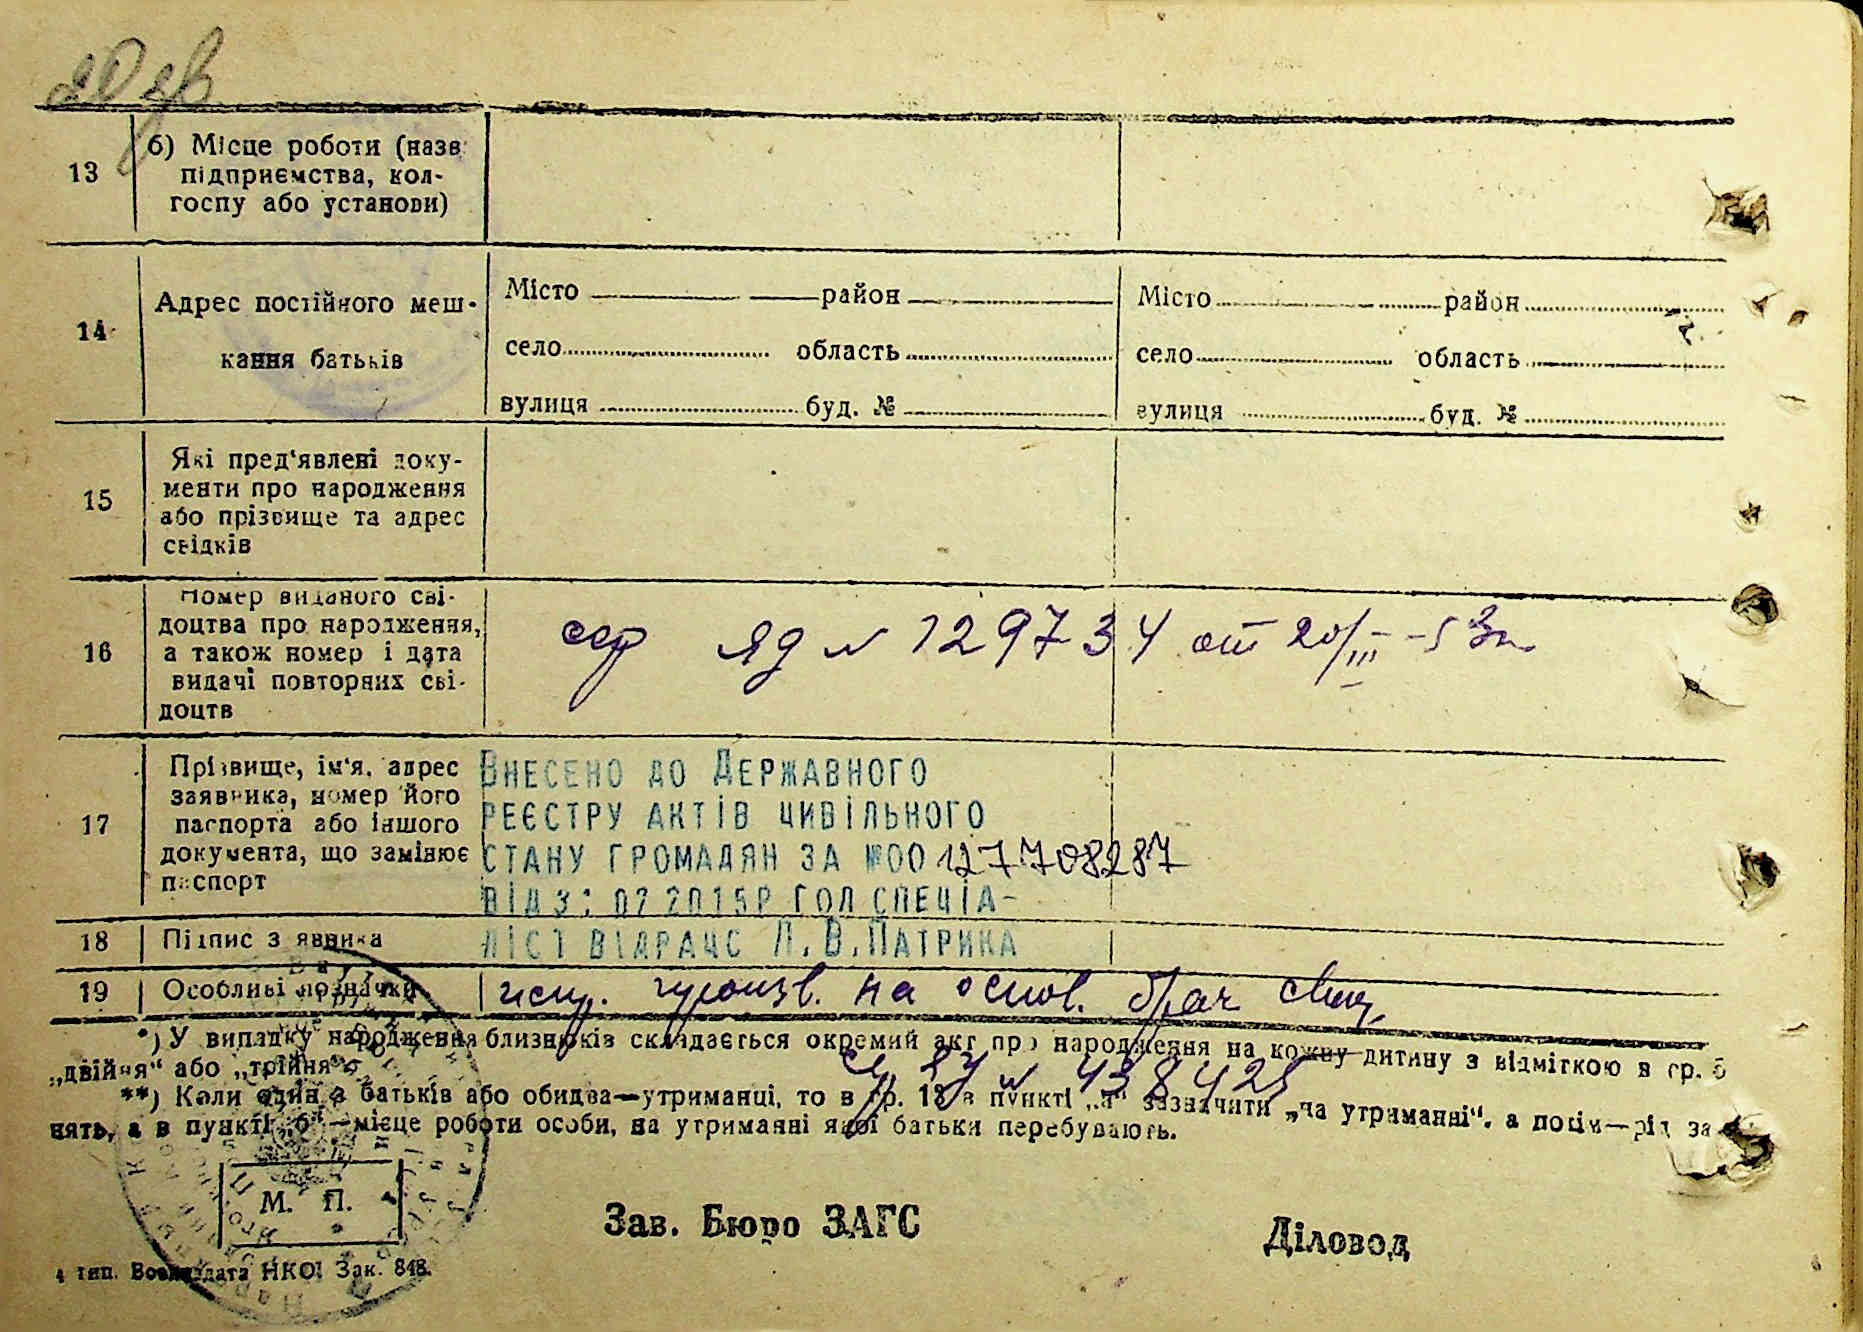 13
б) Місце роботи (назв
підприємства, кол-
госпу або установи)
14
Адрес постійного меш-
кання батьків
Місто район
село область
вулиця буд. №
Місто район
село область
вулиця буд. №
15
Які пред'явлені доку-
менти про народження
або прізвище та адрес
свідків
16
Номер виданого сві-
доцтва про народження,
а також номер і дата
видачі повторних сві-
доцтв
сер ЯД N 129734 от 20/III-53г.
17
Прізвище, ім'я, адрес
заявника, номер його
паспорта або іншого
документа, що замінює
паспорт
Внесено до Державного
реєстру актів цивільного
стану громадян за №00127708287
від 02 2015р гол спеціа-
ліст відрацс Л.В.Патрика
18
Підпис заявника
19
Особливі позначки
испр. произв. на основ. брач свид,
N 438425
*) У випадку народження близнюків складається окремий акт про народження на кожну дитину з відміткою в гр. 6
„двійня“ або „трійня“
**) Коли один з батьків або обидва—утриманці, то в гр. 13 в пункті „а“ зазначити „на утриманні“, а потім—рід за
нять, а в пункті „б“—місце роботи особи, на утриманні якої батьки перебувають.
М. П.
Зав. Бюро ЗАГС
Діловод
4 тип. Воениздата НКО. Зак. 848.